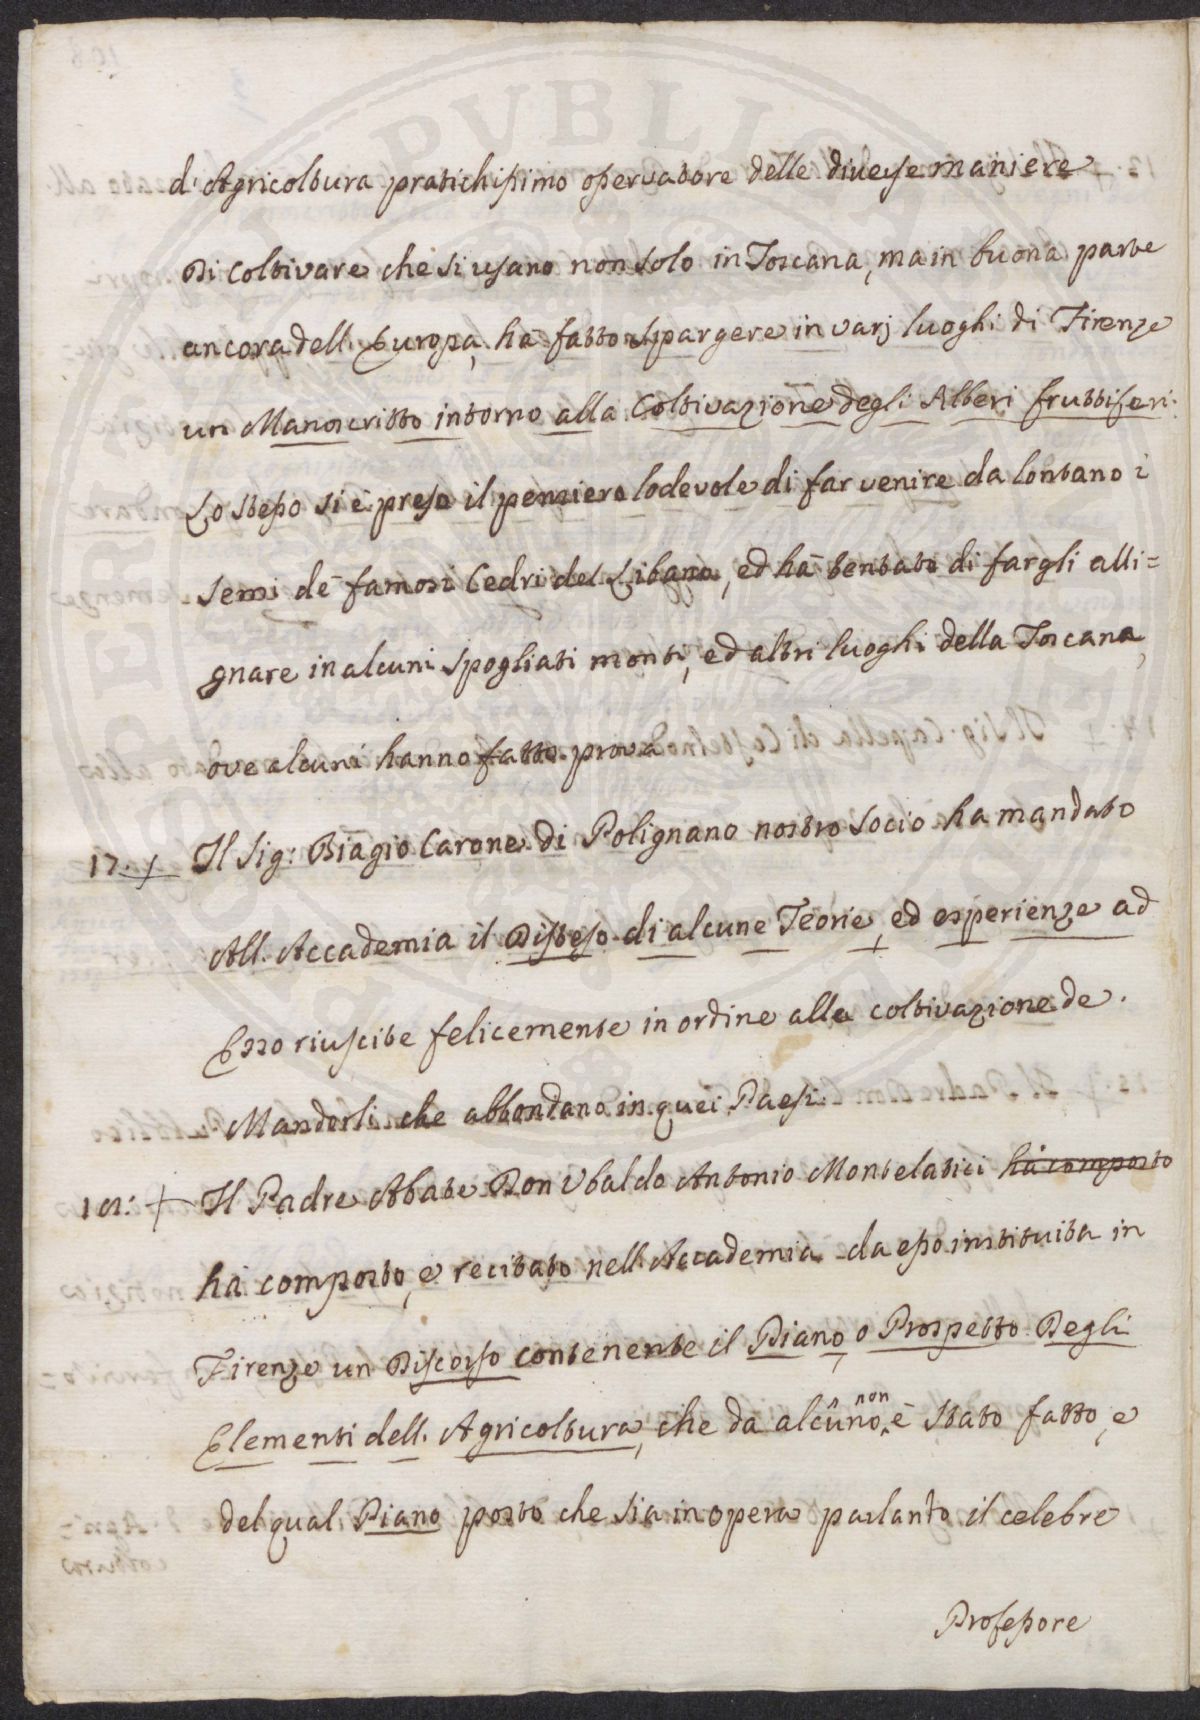 d'Agricoltura pratichissimo osservatore delle diverse maniere
di coltivare che si usano non solo in Toscana, ma in buona parte
ancora dell'Europa, hà fatto spargere in varj luoghi di Firenze
un Manoscritto intorno alla Coltivazione degli Alberi fruttiferi.
Lo stesso si è preso il pensiero lodevole di far venire da lontano i
semi de' famosi Cedri del Libano, ed hà tentato di fargli alli=
gnare in alcuni spogliati monti, ed altri luoghi della Toscana,
ove alcuni hanno fatto prova
17. Il Sig: Biagio Carone di Polignano nostro socio ha mandato
All'Accademia il Disteso di alcune Teorie, ed esperienze ad
Esso riuscite felicemente in ordine alla coltivazione de'
Mandorli che abbondano in quei Paesi.
18: Il Padre Abate Don Ubaldo Antonio Montelatici ha composto
hà composto, e recitato nell'Accademia da esso instituita in
Firenze un Discorso contenente il Piano, o Prospetto Degli
Elementi dell'Agricoltura, che da alcuno non è stato fatto, e
del qual Piano posto che sia in opera parlanto il celebre
Professore